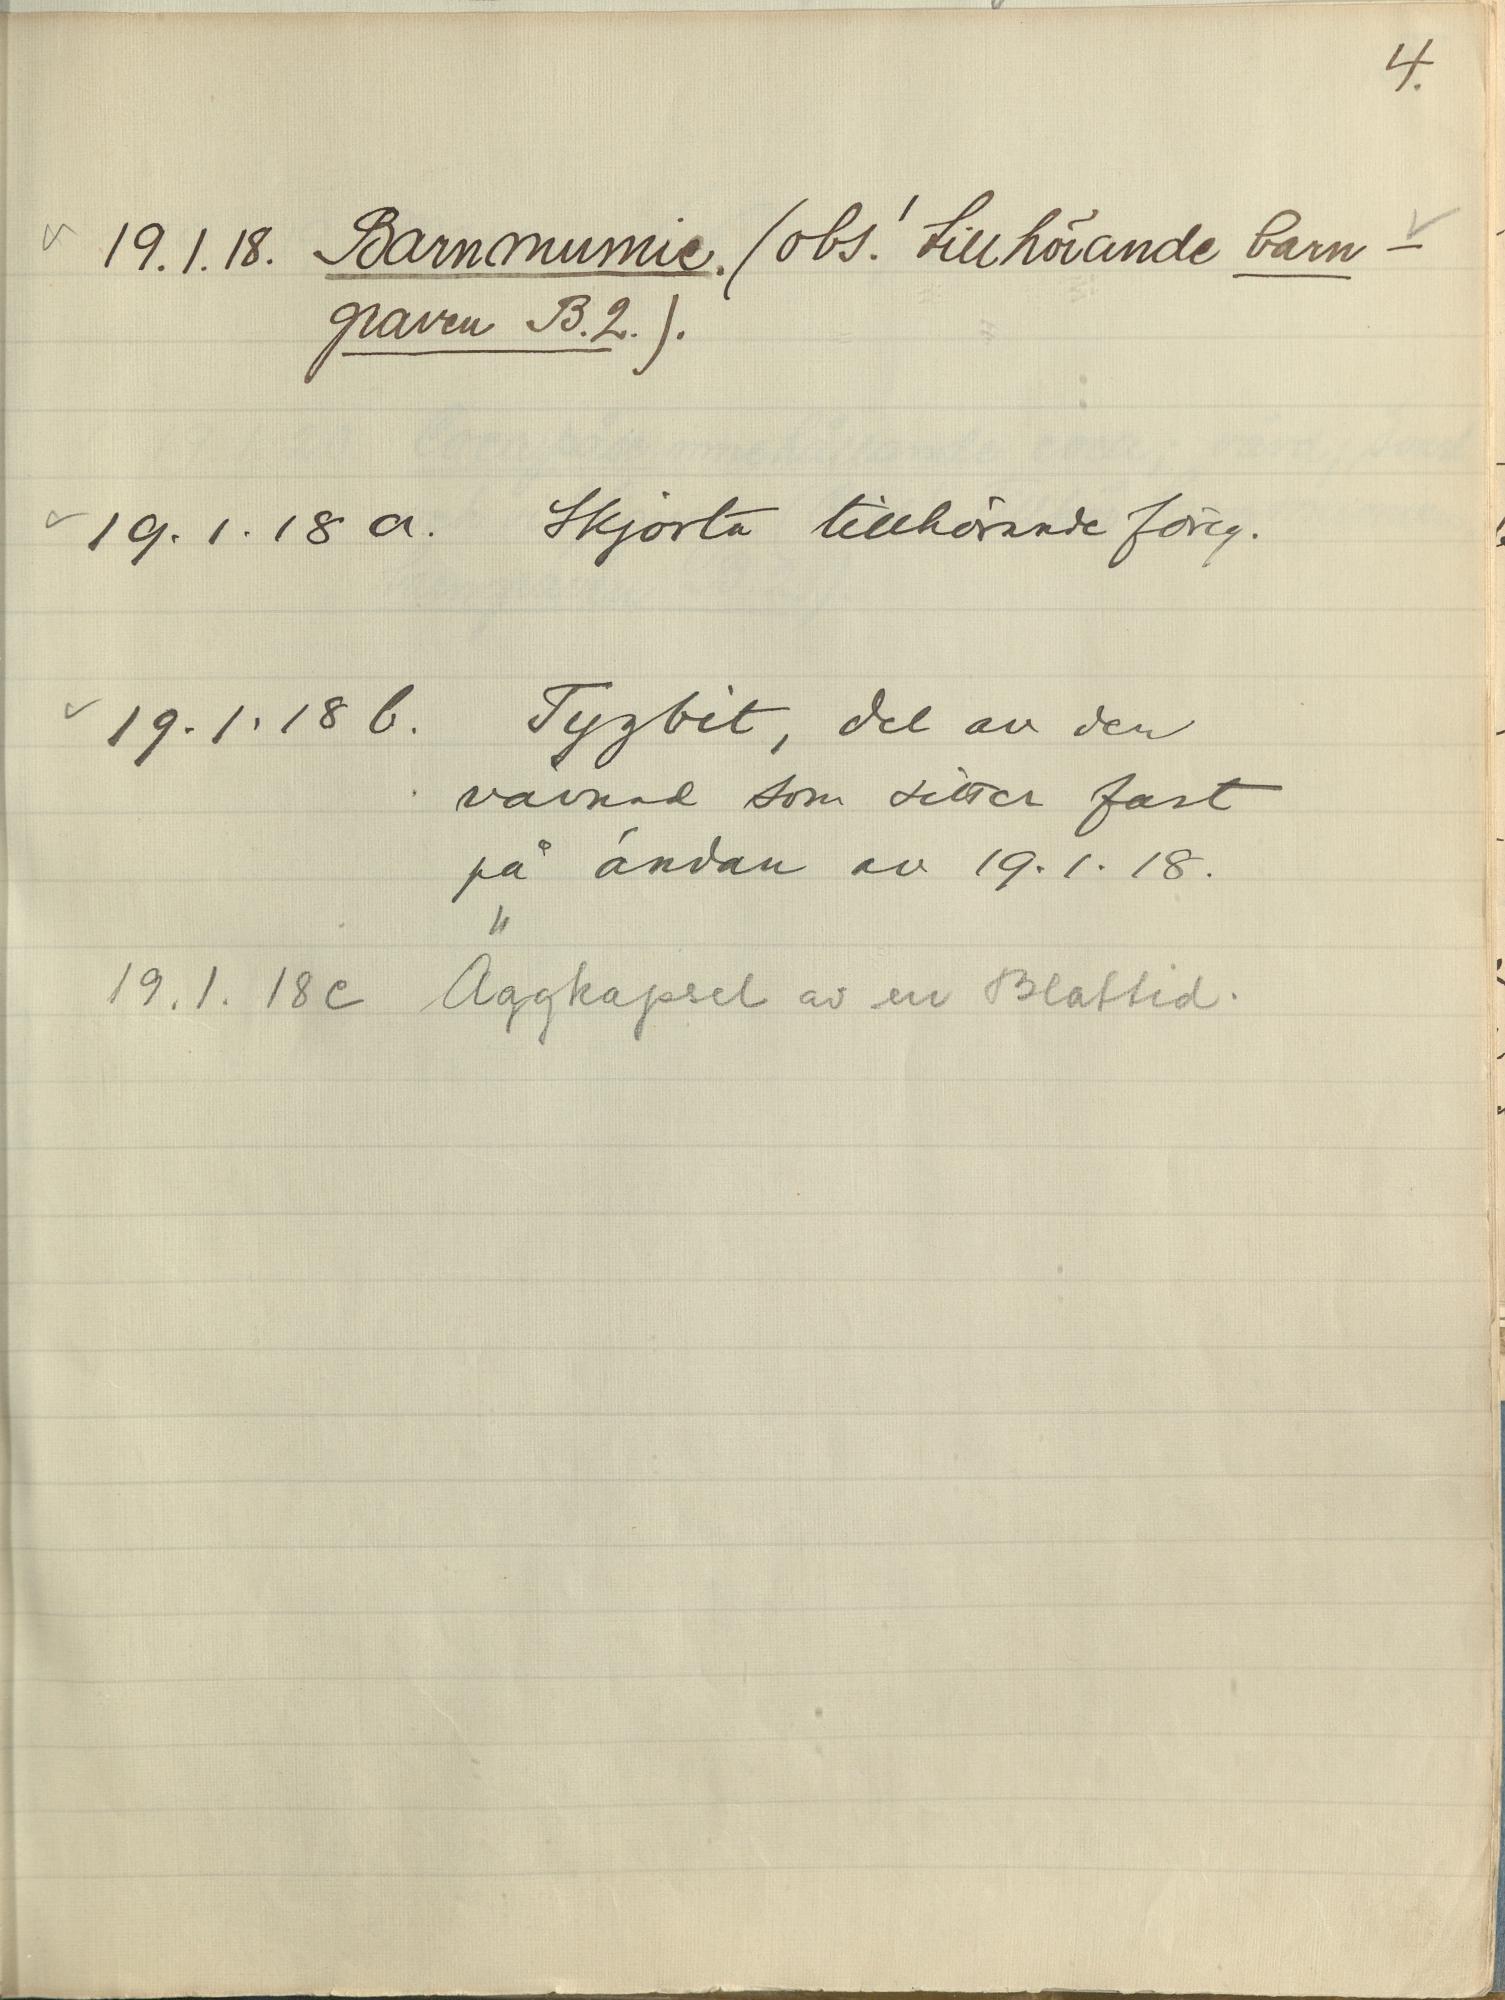 4.
✓ 19.1.18. Barnmumie. (obs.! tillhörande barn- ✓
graven B.2.).
✓ 19.1.18 a. Skjorta tillhörande föreg.
✓ 19.1.18 b. Tygbit, del av den
vävnad som sitter fast
på ändan av 19.1.18.
19.1.18c Äggkapsel av en Blattid.